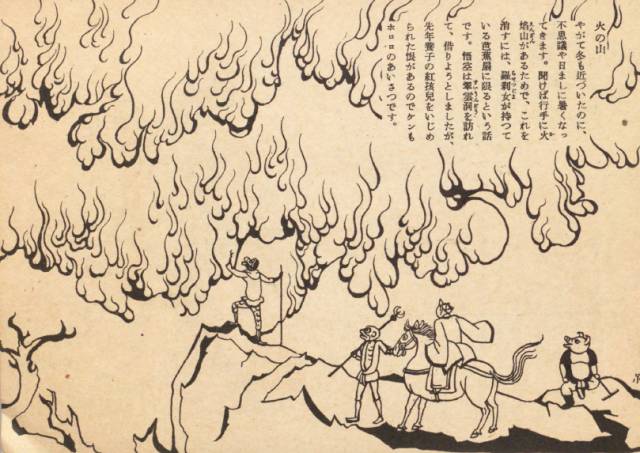 火の山
やがて冬も近づいたのに、
不思議や日ましに暑くなっ
てきます。聞けば行手に火
焰山があるためで、これを
治すには、羅刹女が持つて
いる芭蕉扇に限るという話
です。悟空は翠雲洞を訪れ
て、借りようとしましたが、
先年養子の紅孩兒をいじめ
られた恨があるのでケンも
ホロロのあいさつです。